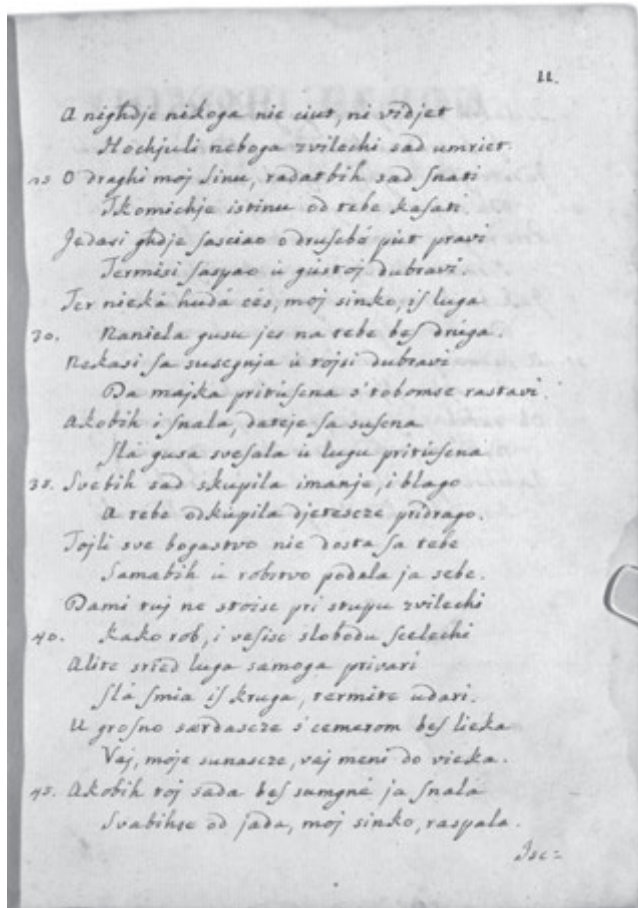 11.
A nighdje nikoga nie ciut, ni vidjet
Hochjuli neboga zvilechi sad umriet.
25 O draghi moj sinu, radatbih sad snati
Tkomichje istinu od tebe kasati.
Jedasi ghdje sasciao odrusebà put pravi
Termisi saspao ù gústoj dubravi.
Ter nieká hudá cés, moj sinko, is luga
30. Naniela gusu jes na tebe bes drúga.
Nekasi sa susegnja ù tojsi dubravi
Da majka pritùsena s'tobomse rastavi.
Akobih i snala, dateje sa susena
slá gusa svesala ù lugu pritùsena
35. Svebih sad skupila imanje, i blago
A tebe odkùpila djetescze pridrago.
Tojli sve bogastvo nie dosta sa tebe
Samabih ù robstvo podala ja sebe.
Dami tuj ne stoisc pri stupu zvilechi
40. Kako rob, i vesisc slobodu scelechi
Alite sried luga samoga privari
slá smia is kruga, termite udari.
U grosno sardascze s'cemerom bes lieka
Vaj, moje sunascze, vaj meni do vieka.
45. Akobih toj sada bes sumgné ja snala
Svabihse od jada, moj sinko, raspala.
Jsc=